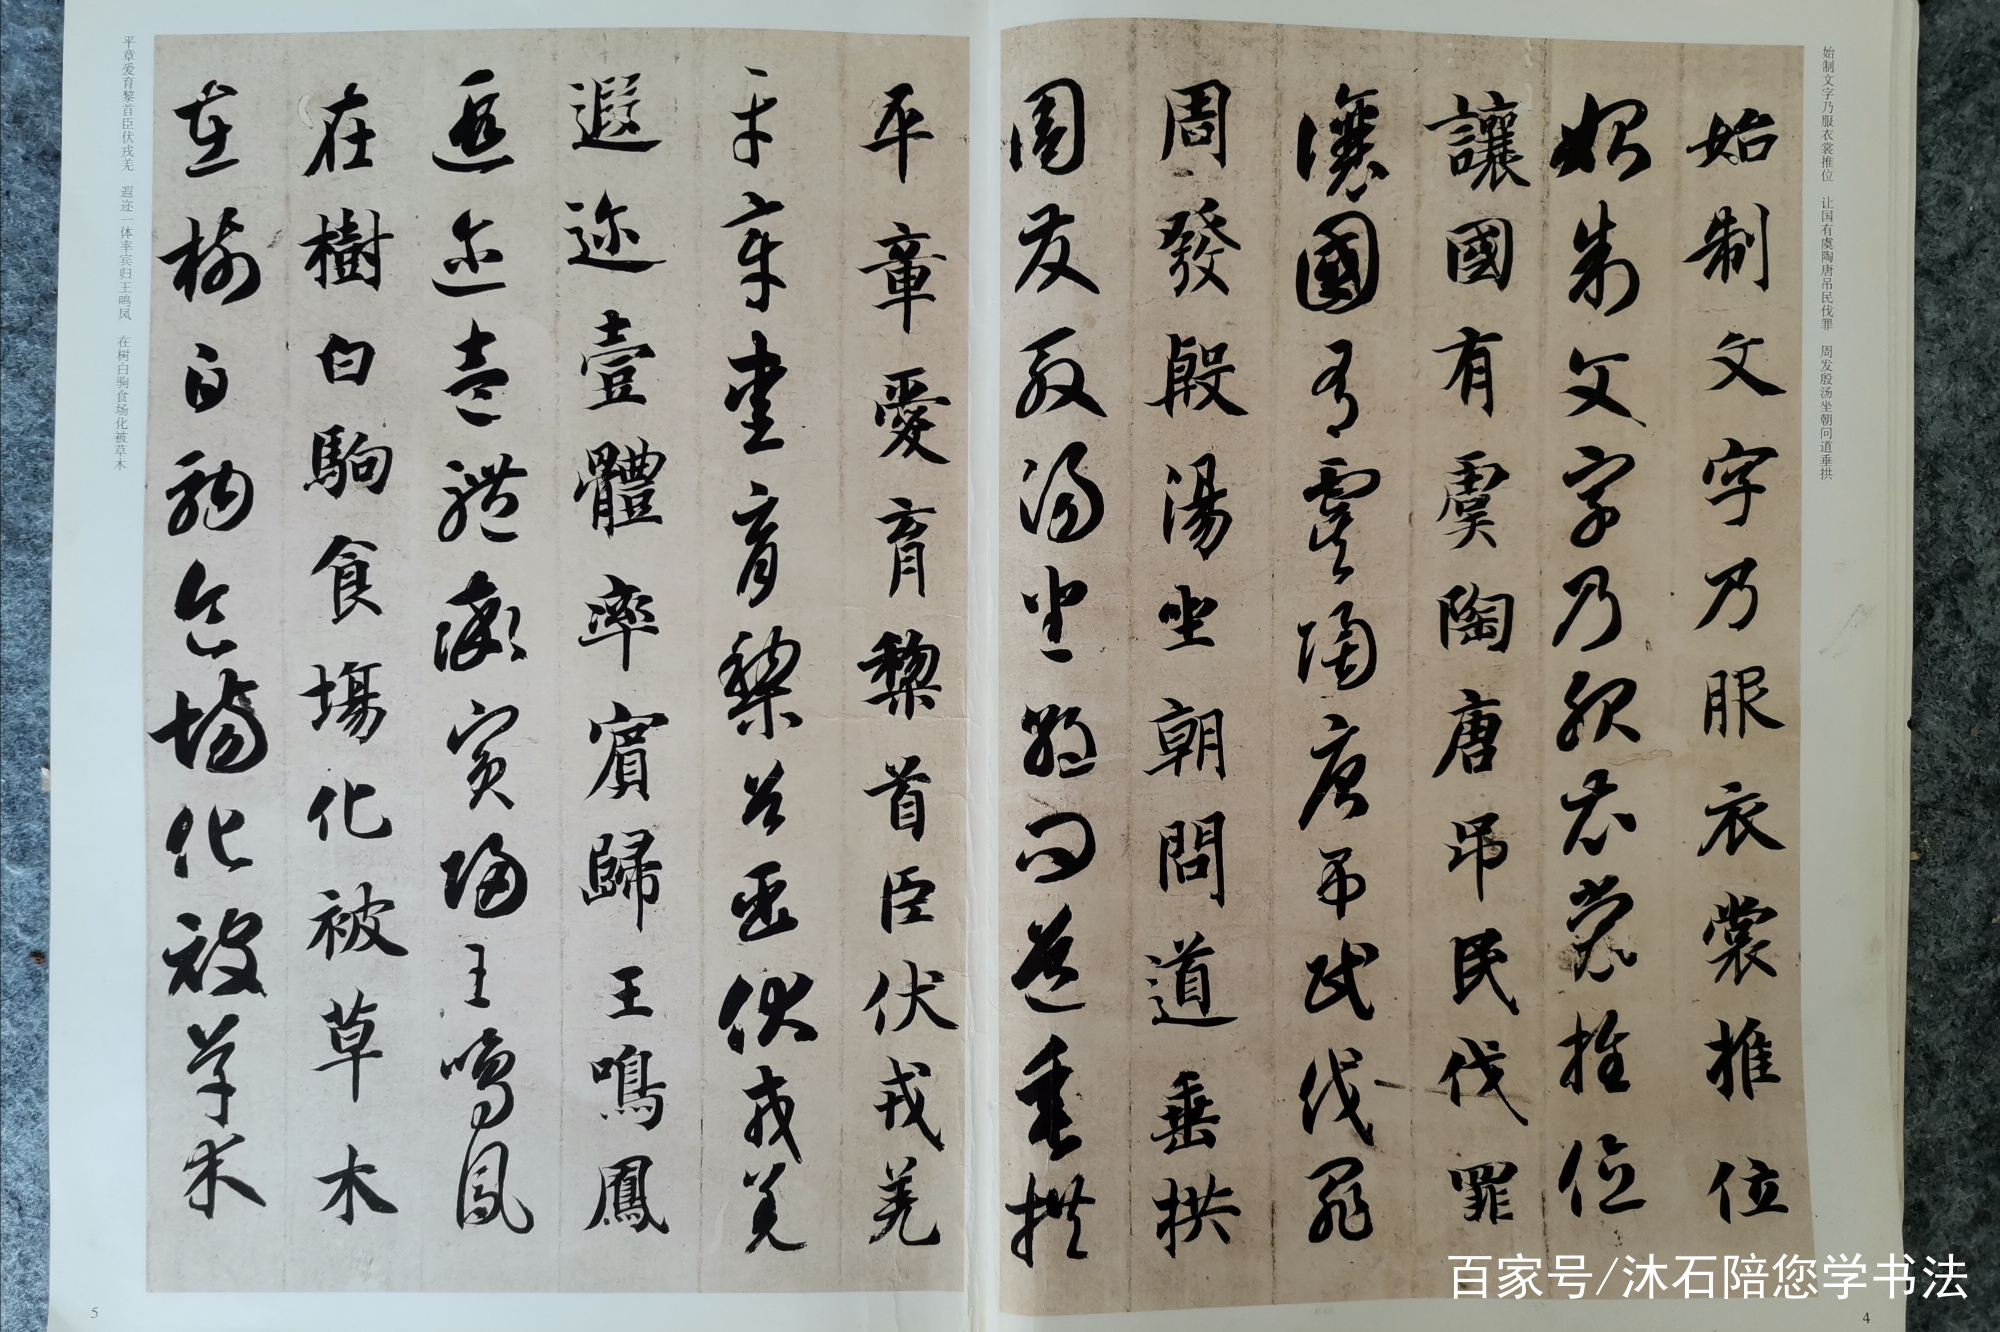 始制文字乃服衣裳推位　让国有虞陶唐吊民伐罪　周发殷汤坐朝问道垂拱
始制文字乃服衣裳推位
始制文字乃服衣裳推位
讓國有虞陶唐吊民伐罪
讓國有虞陶唐吊民伐罪
周發殷湯坐朝問道垂拱
周發殷湯坐朝問道垂拱
4
平章愛育黎首臣伏戎羌
平章愛育黎首臣伏戎羌
遐迩壹體率賓歸王鳴鳳
遐迩壹體率賓歸王鳴鳳
在樹白駒食場化被草木
在樹白駒食場化被草木
平章爱育黎首臣伏戎羌　遐迩一体率宾归王鸣凤　在树白驹食场化被草木
5
百家号/沐石陪您学书法